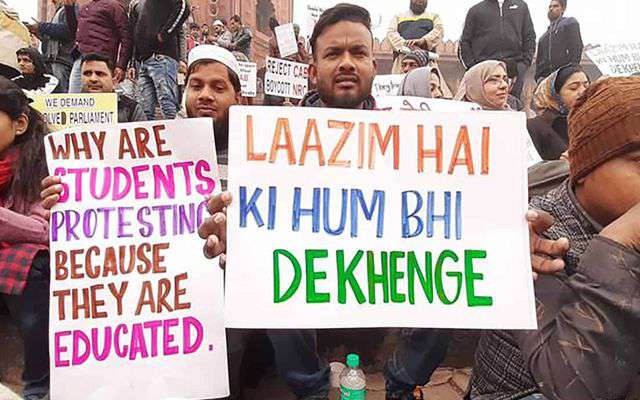 WE DEMAND
PARLIAMENT
REJECT CAB
BOYCOTT NRC
WHY ARE
STUDENTS
PROTESTING
BECAUSE
THEY ARE
EDUCATED.
LAAZIM HAI
KI HUM BHI
DEKHENGE